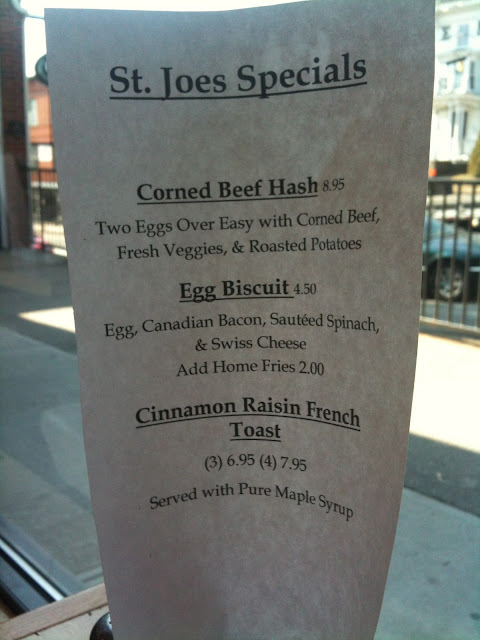 St. Joes Specials
Corned Beef Hash 8.95
Two Eggs Over Easy with Corned Beef,
Fresh Veggies, & Roasted Potatoes
Egg Biscuit 4.50
Egg, Canadian Bacon, Sautéed Spinach,
& Swiss Cheese
Add Home Fries 2.00
Cinnamon Raisin French
Toast
(3) 6.95 (4) 7.95
Served with Pure Maple Syrup